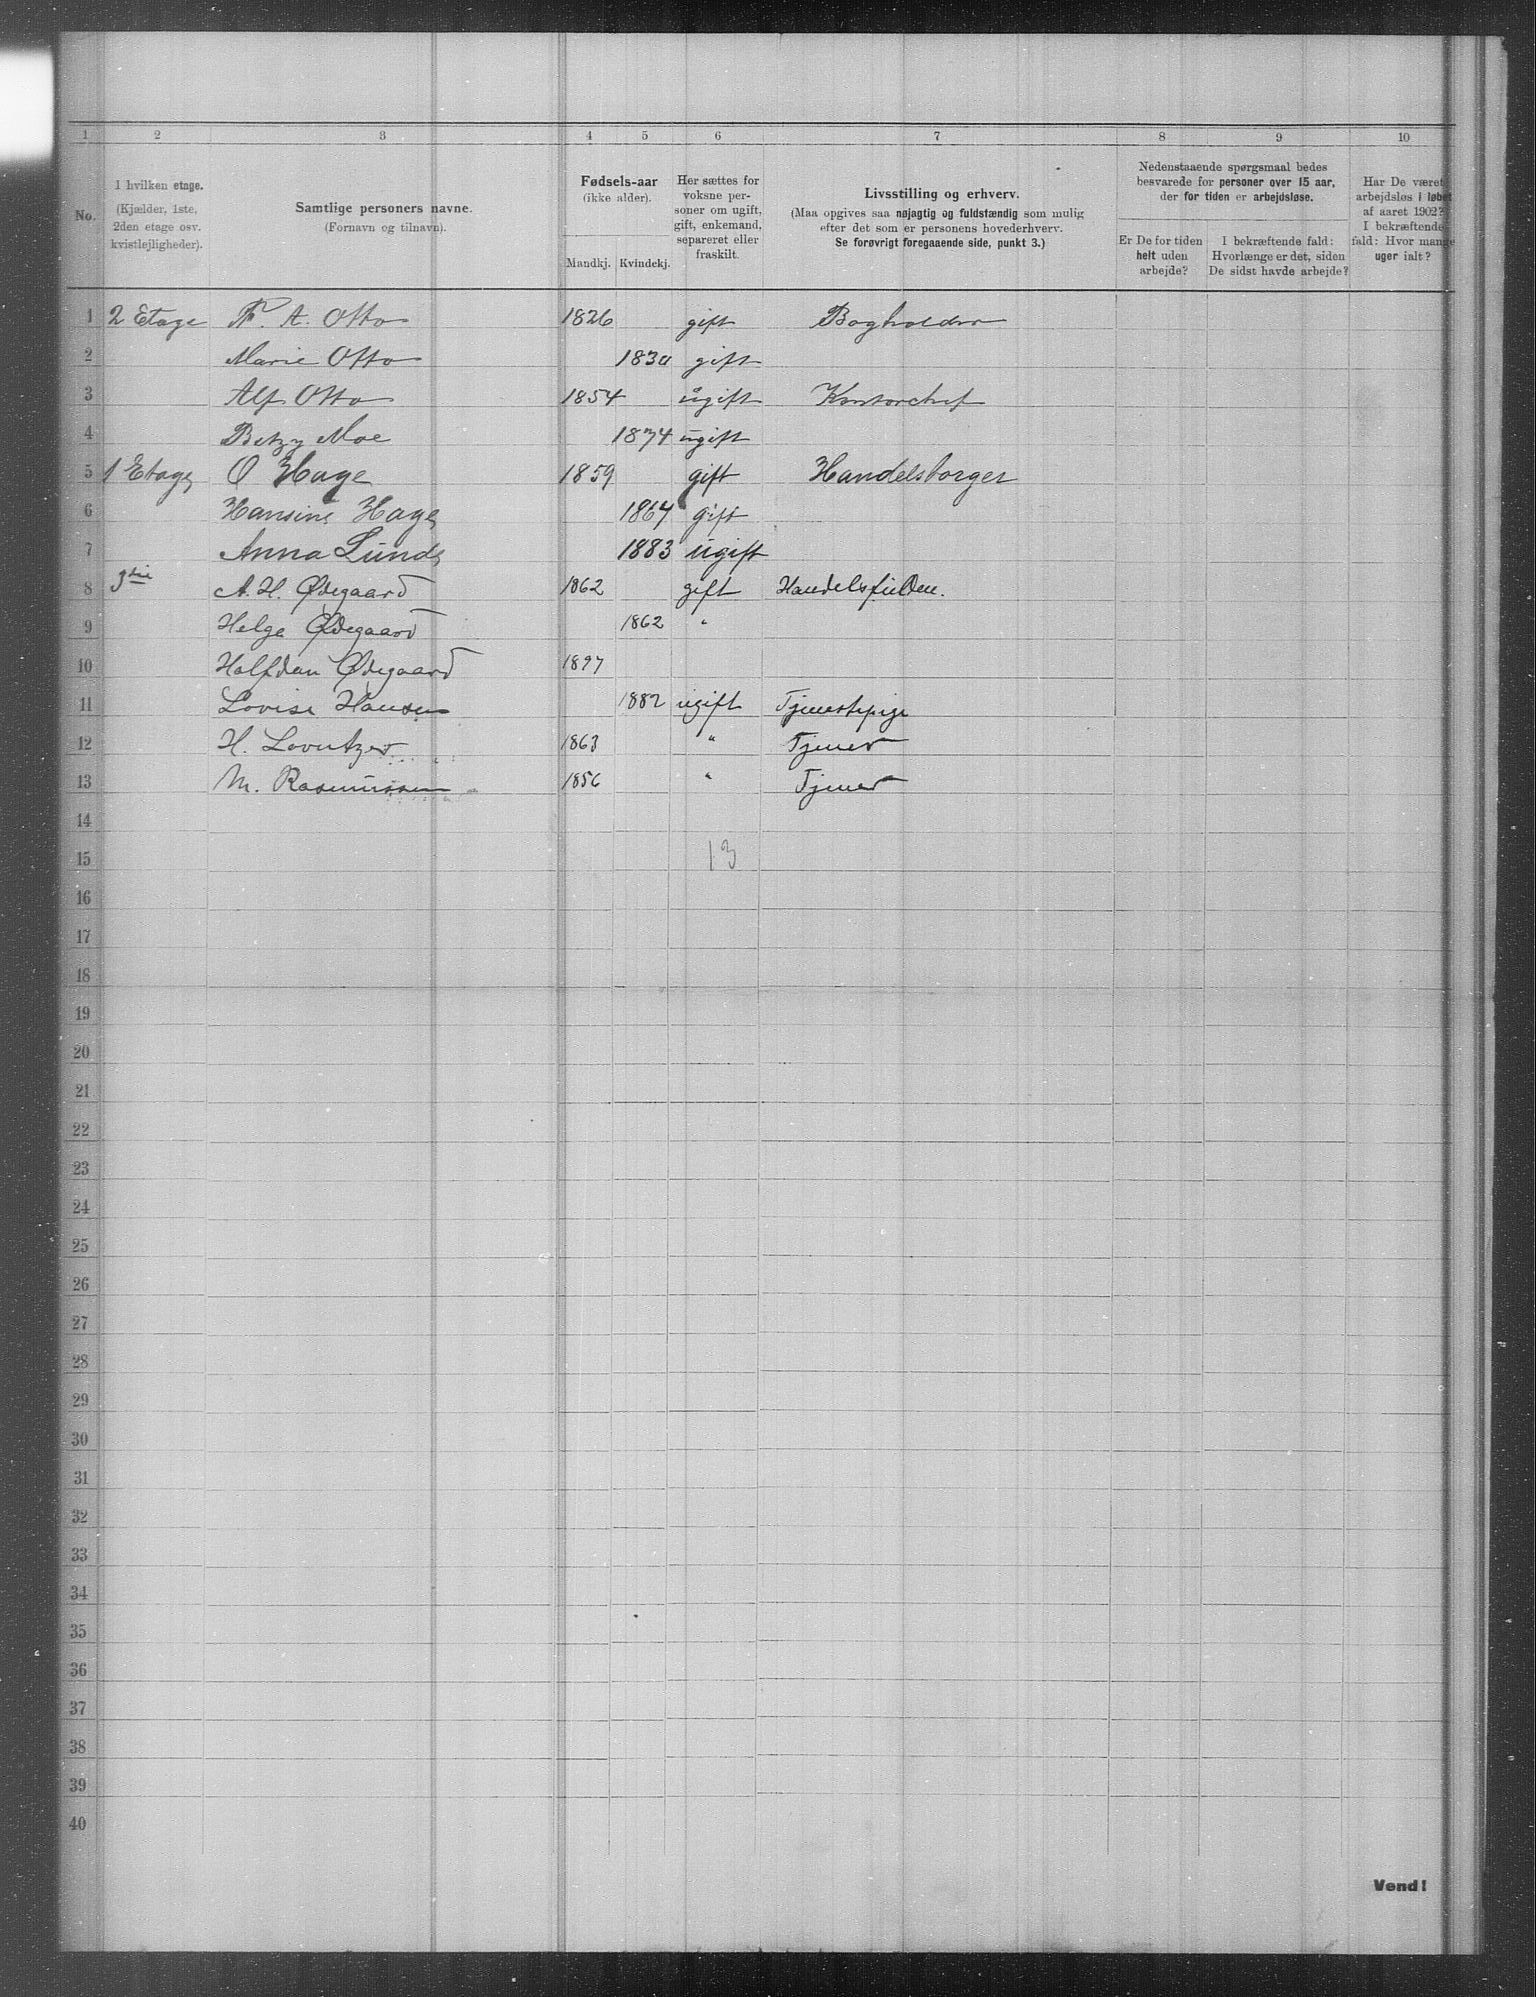 1 2 3 4 5 6 7 8 9 10
No.
I hvilken etage.
(Kjælder, 1ste,
2den etage osv.
kvistlejligheder).
Samtlige personers navne.
(Fornavn og tilnavn).
Fødsels-aar
(ikke alder).
Mandkj. Kvindekj.
Her sættes for
voksne per-
soner om ugift,
gift, enkemand,
separeret eller
fraskilt.
Livsstilling og erhverv.
(Maa opgives saa nøjagtig og fuldstændig som mulig
efter det som er personens hovederhverv.
Se forøvrigt foregaaende side, punkt 3.)
Nedenstaaende spørgsmaal bedes
besvarede for personer over 15 aar,
der for tiden er arbejdsløse.
Er De for tiden
helt uden
arbejde?
I bekræftende fald:
Hvorlænge er det, siden
De sidst havde arbejde?
Har De været
arbejdsløs i løbet
af aaret 1902?
I bekræftende
fald: Hvor mange
uger ialt?
1 2 Etage F. A. Otto 1826 gift Bogholder
2 Marie Otto 1830 gift
3 Alf Otto 1854 ugift Kontorchef
4 Betzy Moe 1874 ugift
5 1 Etage O Hage 1859 gift Handelsborger
6 Hansine Hage 1864 gift
7 Anna Lunde 1883 ugift
8 3die A. H. Ødegaard 1862 gift Handelsfuldm.
9 Helga Ødegaard 1862 "
10 Halfdan Ødegaard 1897
11 Lovise Hansen 1882 ugift Tjenestepige
12 H. Lorentzen 1863 " Tjener
13 M. Rasmussen 1856 " Tjener
14
15 13
16
17
18
19
20
21
22
23
24
25
26
27
28
29
30
31
32
33
34
35
36
37
38
39
40
Vend!